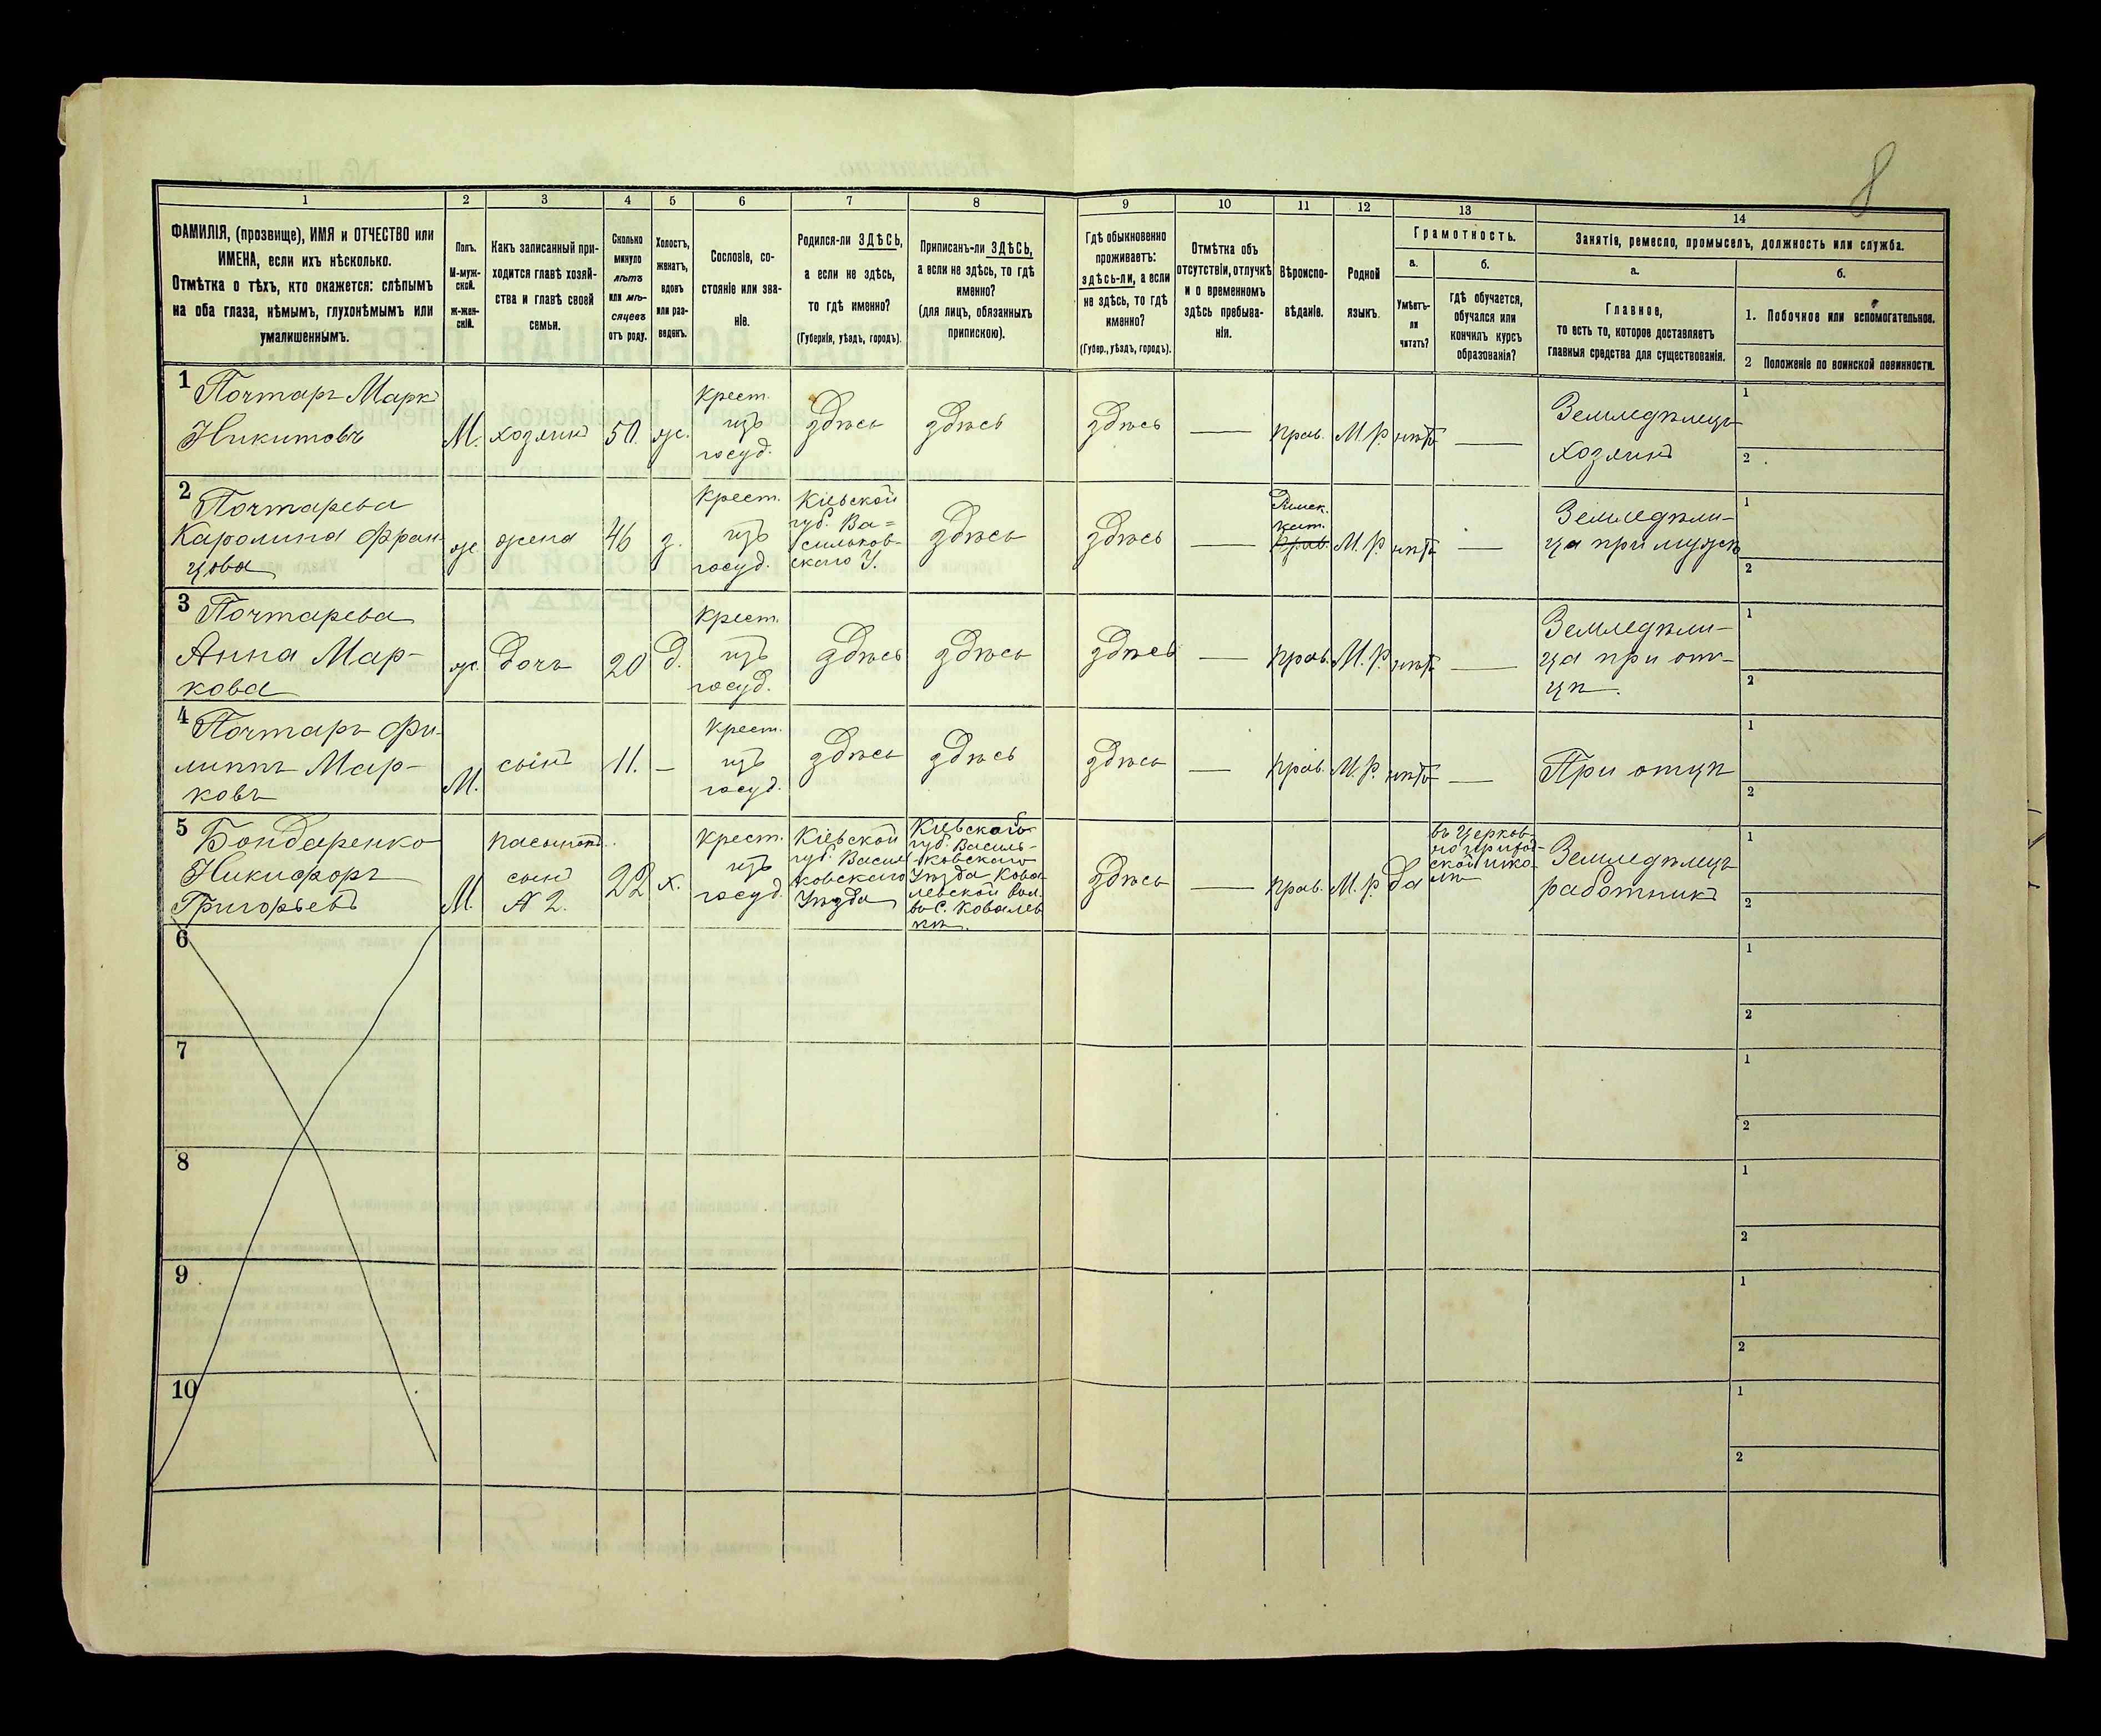 8
1 2 3 4 5 6 7 8 9 10 11 12 13 14
ФАМИЛІЯ, (прозвище), ИМЯ и ОТЧЕСТВО или
ИМЕНА, если ихъ нѣсколько.
Отмѣтка о тѣхъ, кто окажется: слѣпымъ
на оба глаза, нѣмымъ, глухонѣмымъ или
умалишеннымъ.
Полъ.
М-муж-
ской.
Ж-жен-
скій.
Какъ записанный при-
ходится главѣ хозяй-
ства и главѣ своей
семьи.
Сколько
минуло
лѣтъ
или мѣ-
сяцевъ
отъ роду.
Холостъ,
женатъ,
вдовъ
или раз-
веденъ.
Сословіе, со-
стояніе или зва-
ніе.
Родился-ли ЗДѢСЬ,
а если не здѣсь,
то гдѣ именно?
(Губернія, уѣздъ, городъ).
Приписанъ-ли ЗДѢСЬ,
а если не здѣсь, то гдѣ
именно?
(для лицъ, обязанныхъ
припискою).
Гдѣ обыкновенно
проживаетъ:
здѣсь-ли, а если
не здѣсь, то гдѣ
именно?
(Губер., уѣздъ, городъ).
Отмѣтка объ
отсутствіи, отлучкѣ
и о временномъ
здѣсь пребыва-
ніи.
Вѣроиспо-
вѣданіе.
Родной
языкъ.
Грамотность.
а.
Умѣетъ-
ли
читать?
б.
гдѣ обучается,
обучался или
кончилъ курсъ
образованія?
Занятіе, ремесло, промыселъ, должность или служба.
а.
Главное,
то есть то, которое доставляетъ
главныя средства для существованія.
б.
1. Побочное или вспомогательное.
2 Положеніе по воинской повинности.
1
Почтарь Маркъ
Никитовъ
М.
хозяинъ
50.
ж.
Крест.
изъ
госуд.
здѣсь
здѣсь
здѣсь
—
прав.
М.Р.
нѣтъ
—
Земледѣлецъ
хозяинъ
1
2
2
Почтарева
Каролина Фран-
цова
ж.
жена
46
з.
Крест.
изъ
госуд.
Кіевской
губ. Ва=
сильков-
скаго У.
здѣсь
здѣсь
—
Римск.
кат.
прав.
М.Р.
нѣтъ
—
Земледѣли-
ца при мужѣ
1
2
3
Почтарева
Анна Мар-
кова
ж.
дочь
20
д.
Крест.
изъ
госуд.
здѣсь
здѣсь
здѣсь
—
прав.
М.Р.
нѣтъ
—
Земледѣли-
ца при от-
цѣ.
1
2
4
Почтарь Фи-
липпъ Мар-
ковъ
М.
сынъ
11.
—
Крест.
изъ
госуд.
здѣсь
здѣсь
здѣсь
—
прав.
М.Р.
нѣтъ
—
При отцѣ
1
2
5
Бондаренко
Никифоръ
Григорьевъ
М.
пасынокъ
сынъ
N 2.
22
х.
Крест.
изъ
госуд.
Кіевской
губ. Василь
ковскаго
Уѣзда
Кіевской
губ. Василь-
ковскаго
Уѣзда Кова
левской вол.
въ с. Ковалев
кѣ.
здѣсь
—
прав.
М.Р.
да
въ церков-
но приход-
ской шко-
лѣ
Земледѣлецъ
работникъ
1
2
6
1
2
7
1
2
8
1
2
9
1
2
10
1
2